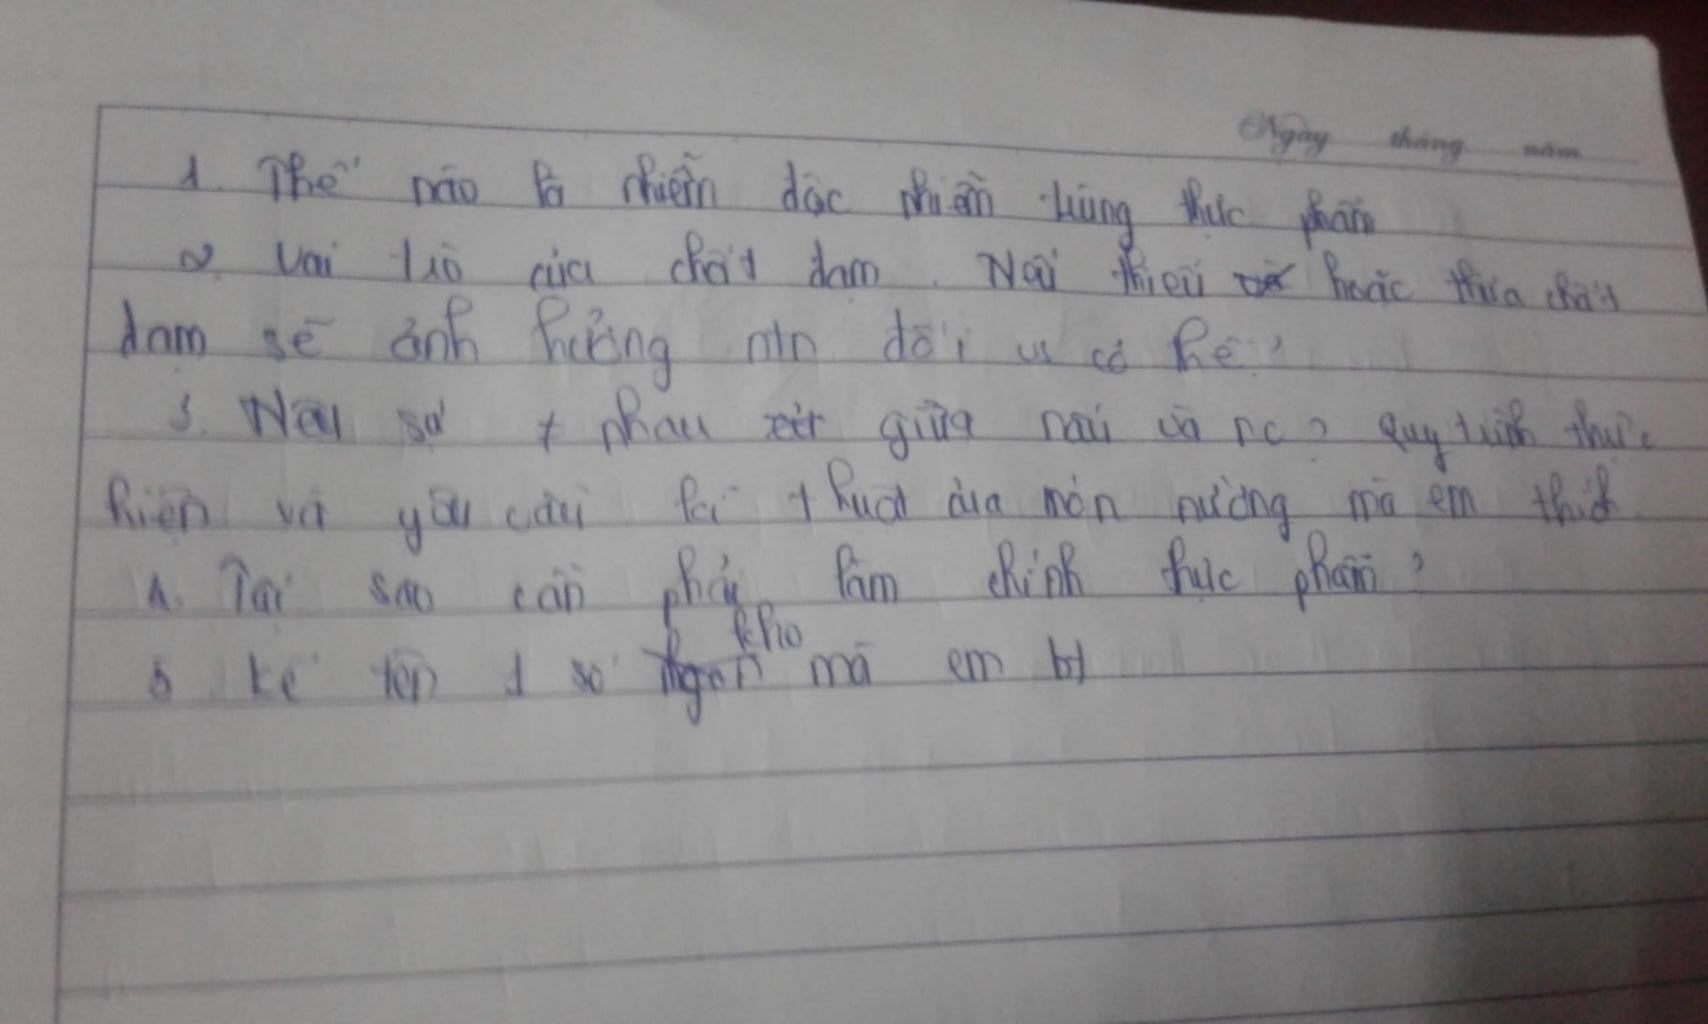 Ngày tháng năm
1. Thế nào là nhiễm độc nhiễm trùng thực phẩm
2. Vai trò của chất đạm. Nếu thiếu hoặc thừa chất
đạm sẽ ảnh hưởng ntn đối vs cơ thể?
3. Nêu sự ≠ nhau giữa nấu và nc? Quy trình thực
hiện và yêu cầu kĩ thuật của món nướng mà em thích
4. Tại sao cần phải làm chính thực phẩm?
5 kể tên 1 số kho mà em bt